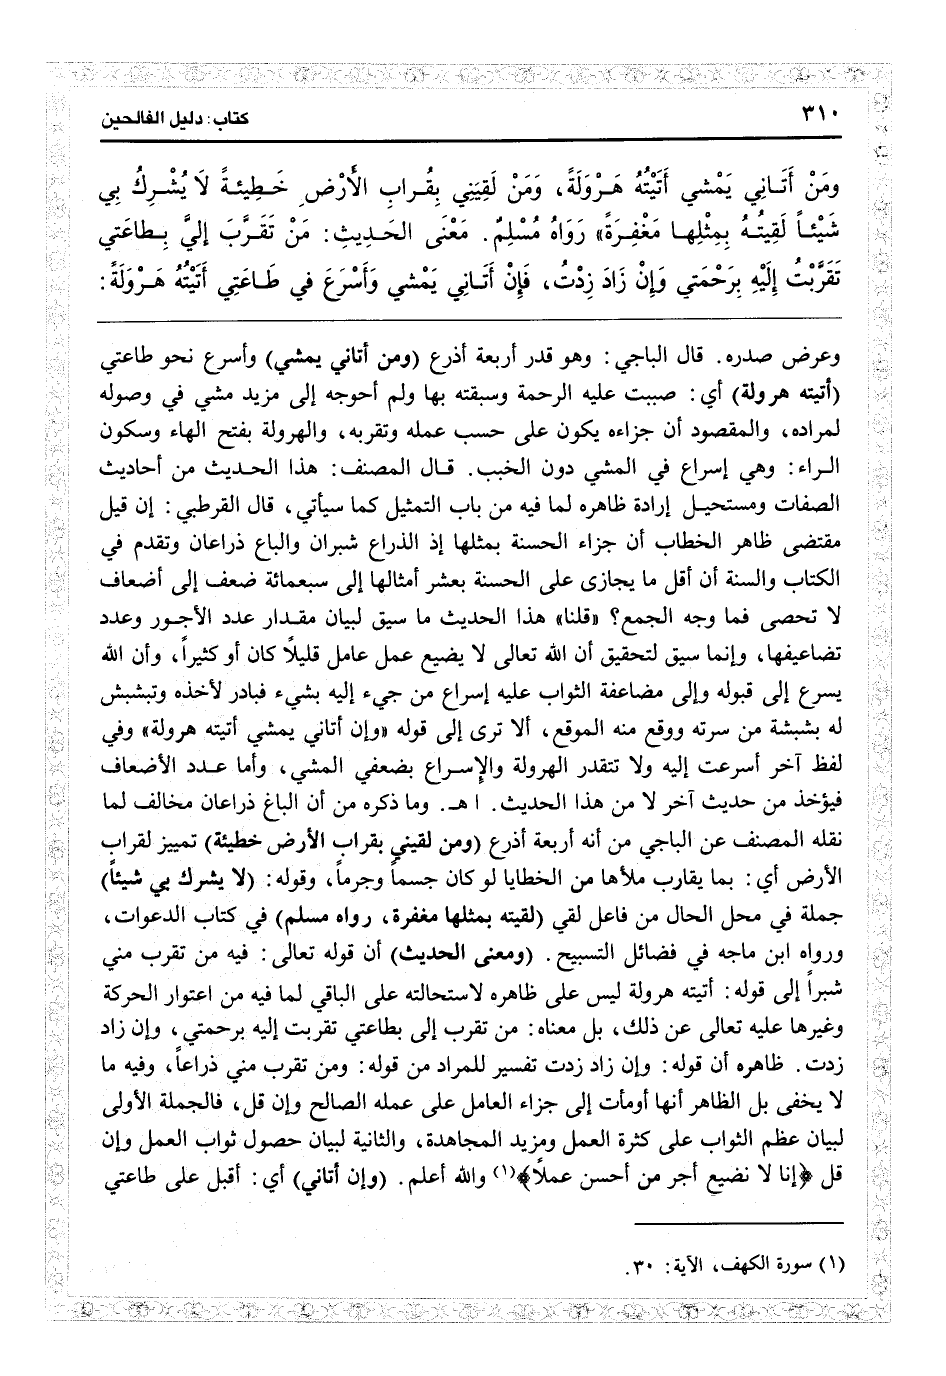 ٣١٠
كتاب: دليل الفالحين
ومَنْ أَتَـانِي يَمْشي أَتَيْتُهُ هَـرْوَلَةً، وَمَنْ لَقِيَنِي بِقُـرابِ الأَرْضِ خَـطِيئـةً لَا يُشْـرِكُ بِي
شَيْئـاً لَقِيتُـهُ بِمِثْلِهـا مَغْفِـرَةً» رَوَاهُ مُسْلِمٌ. مَعْنَى الحَـدِيثِ: مَنْ تَقَـرَّبَ إِليَّ بِـطاعَتي
تَقَرَّبْتُ إِلَيْهِ بِرَحْمَتي وَإِنْ زَادَ زِدْتُ، فَإِنْ أَتَـانِي يَمْشي وَأَسْرَعَ في طَـاعَتِي أَتَيْتُهُ هَـرْوَلَةً:
وعرض صدره. قال الباجي: وهو قدر أربعة أذرع (ومن أتاني يمشي) وأسرع نحو طاعتي
(أتيته هرولة) أي: صببت عليه الرحمة وسبقته بها ولم أحوجه إلى مزيد مشي في وصوله
لمراده، والمقصود أن جزاءه يكون على حسب عمله وتقربه، والهرولة بفتح الهاء وسكون
الـراء: وهي إسراع في المشي دون الخبب. قـال المصنف: هذا الحـديث من أحاديث
الصفات ومستحيـل إرادة ظاهره لما فيه من باب التمثيل كما سيأتي، قال القرطبي: إن قيل
مقتضى ظاهر الخطاب أن جزاء الحسنة بمثلها إذ الذراع شبران والباع ذراعان وتقدم في
الكتاب والسنة أن أقل ما يجازى على الحسنة بعشر أمثالها إلى سبعمائة ضعف إلى أضعاف
لا تحصى فما وجه الجمع؟ «قلنا» هذا الحديث ما سيق لبيان مقـدار عدد الأجـور وعدد
تضاعيفها، وإنما سيق لتحقيق أن الله تعالى لا يضيع عمل عامل قليلاً كان أو كثيراً، وأن الله
يسرع إلى قبوله وإلى مضاعفة الثواب عليه إسراع من جيء إليه بشيء فبادر لأخذه وتبشبش
له بشبشة من سرته ووقع منه الموقع، ألا ترى إلى قوله «وإن أتاني يمشي أتيته هرولة» وفي
لفظ آخر أسرعت إليه ولا تتقدر الهرولة والإسـراع بضعفي المشي، وأما عـدد الأضعاف
فيؤخذ من حديث آخر لا من هذا الحديث. ا هـ. وما ذكره من أن الباغ ذراعان مخالف لما
نقله المصنف عن الباجي من أنه أربعة أذرع (ومن لقيني بقراب الأرض خطيئة) تمييز لقراب
الأرض أي: بما يقارب ملأها من الخطايا لو كان جسماً وجرماً، وقوله: (لا يشرك بي شيئاً)
جملة في محل الحال من فاعل لقي (لقيته بمثلها مغفرة، رواه مسلم) في كتاب الدعوات،
ورواه ابن ماجه في فضائل التسبيح. (ومعنى الحديث) أن قوله تعالى: فيه من تقرب مني
شبراً إلى قوله: أتيته هرولة ليس على ظاهره لاستحالته على الباقي لما فيه من اعتوار الحركة
وغيرها عليه تعالى عن ذلك، بل معناه: من تقرب إلى بطاعتي تقربت إليه برحمتي، وإن زاد
زدت. ظاهره أن قوله: وإن زاد زدت تفسير للمراد من قوله: ومن تقرب مني ذراعاً، وفيه ما
لا يخفى بل الظاهر أنها أومأت إلى جزاء العامل على عمله الصالح وإن قل، فالجملة الأولى
لبيان عظم الثواب على كثرة العمل ومزيد المجاهدة، والثانية لبيان حصول ثواب العمل وإن
قل ﴿إنا لا نضيع أجر من أحسن عملاً﴾(١) والله أعلم. (وإن أتاني) أي: أقبل على طاعتي
(١) سورة الكهف، الآية: ٣٠.